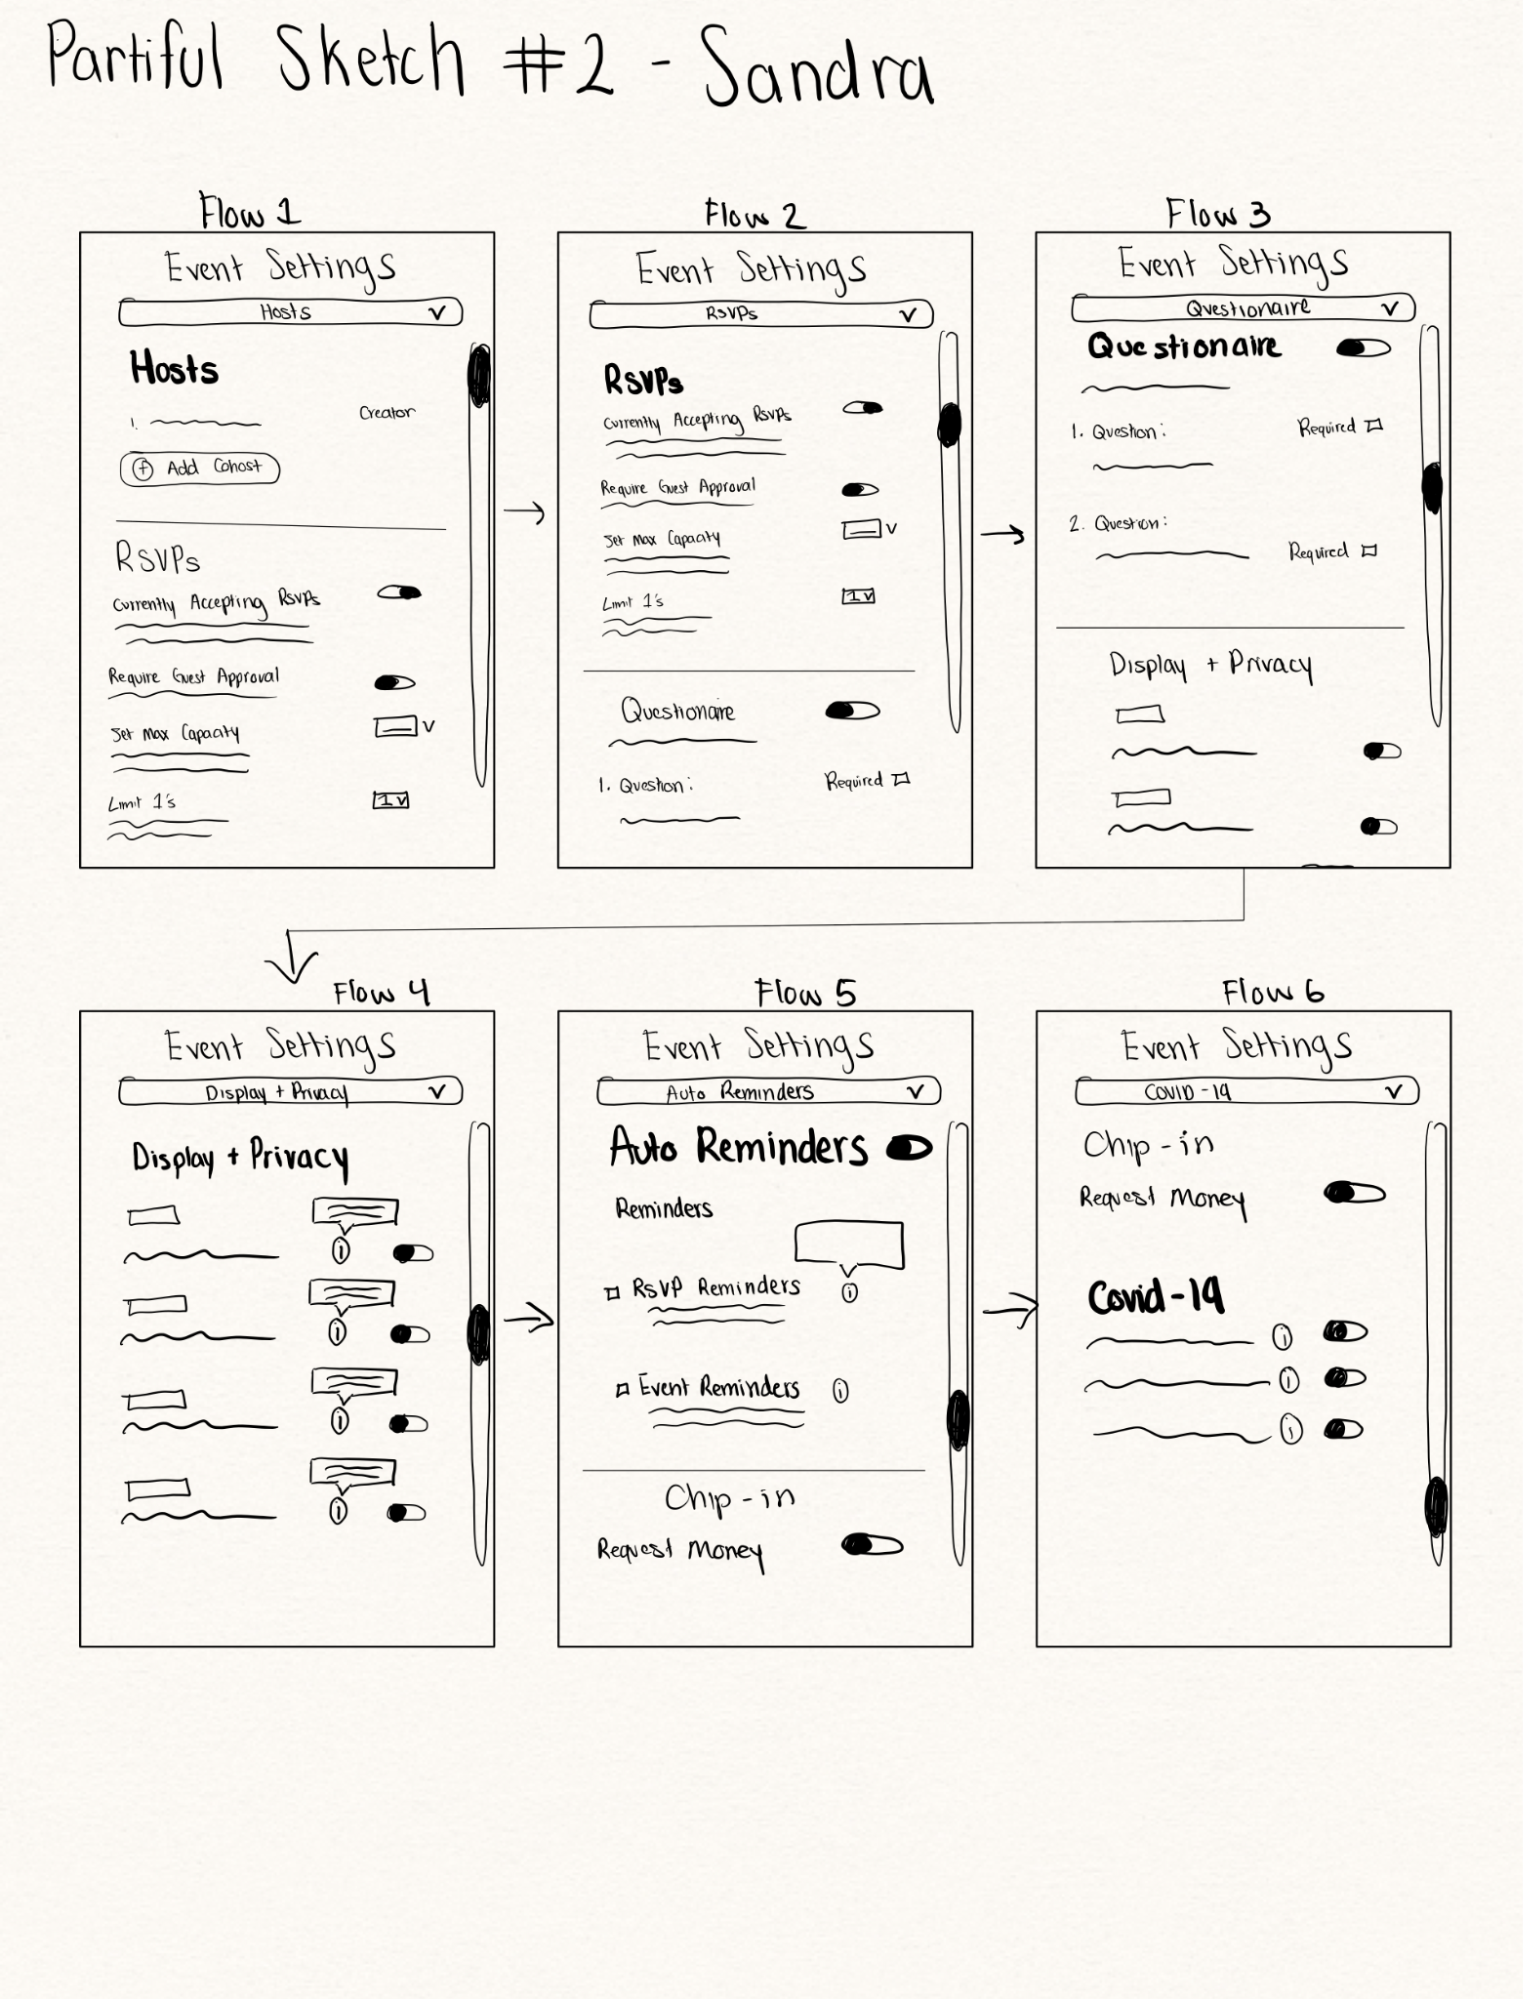 Partiful Sketch #2 - Sandra
Flow 1
Event Settings
Hosts
Hosts
1.
Creator
+ Add Cohost
RSVPs
Currently Accepting RSVPs
Require Guest Approval
Set Max Capacity
Limit 1's
1
Flow 2
Event Settings
RSVPs
RSVPs
Currently Accepting RSVPs
Require Guest Approval
Set Max Capacity
Limit 1's
1
Questionaire
1. Question:
Required
Flow 3
Event Settings
Questionaire
Questionaire
1. Question:
Required
2. Question:
Required
Display + Privacy
Flow 4
Event Settings
Display + Privacy
Display + Privacy
i
i
i
i
Flow 5
Event Settings
Auto Reminders
Auto Reminders
Reminders
RSVP Reminders
i
Event Reminders
i
Chip-in
Request Money
Flow 6
Event Settings
COVID-19
Chip-in
Request Money
Covid-19
i
i
i